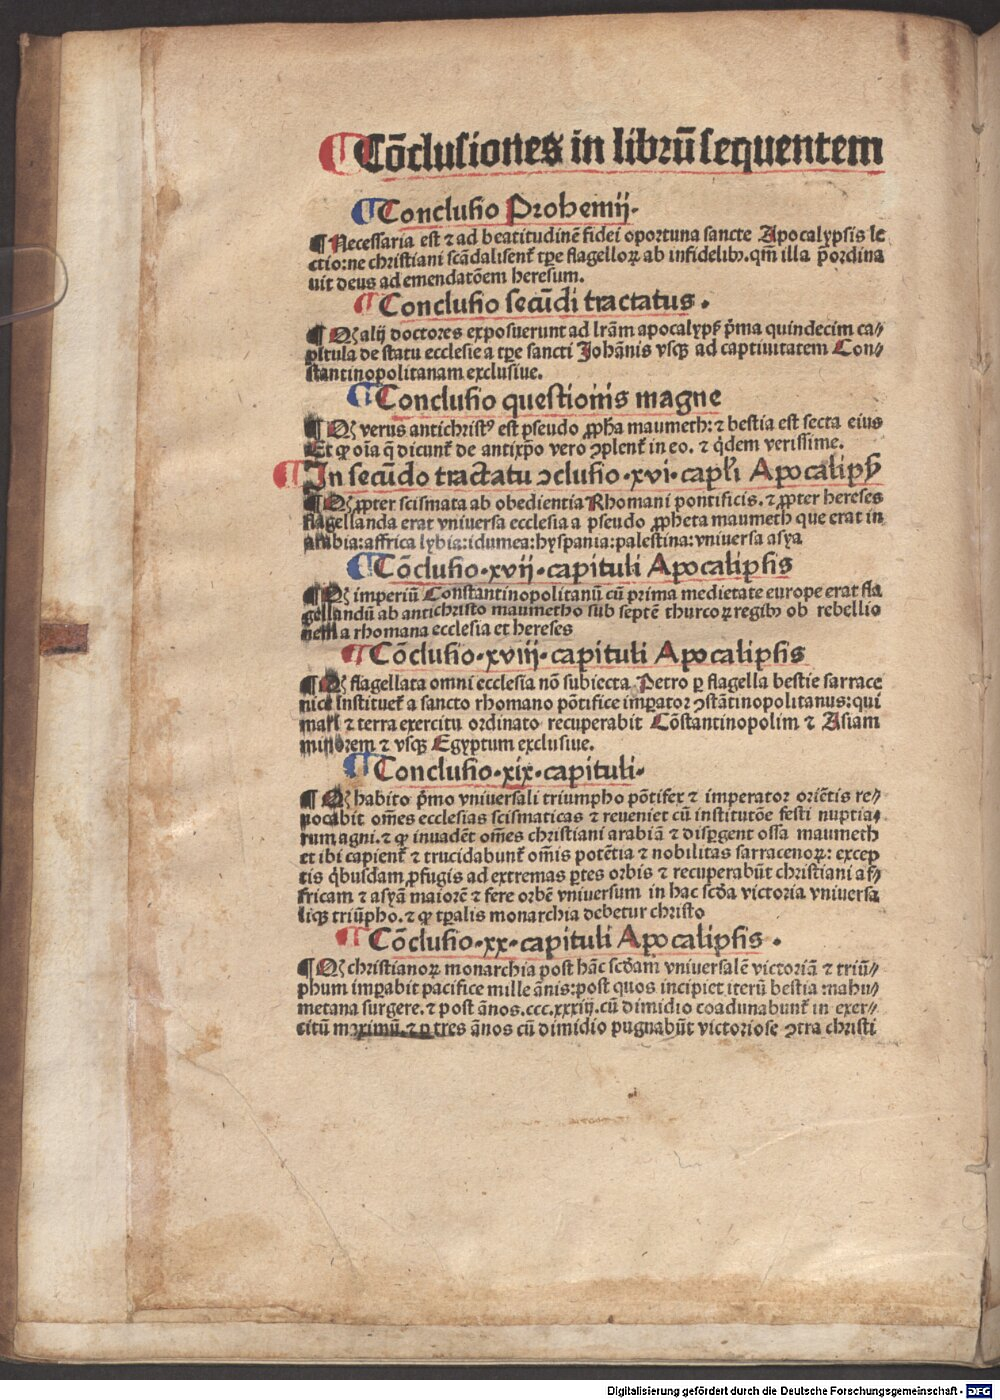 ¶ Cōclusiones in librū sequentem
¶ Conclusio Prohemij.
¶ Necessaria est ⁊ ad beatitudinē fidei oportuna sancte Apocalypsis le
ctio: ne christiani scādalisent᷑ tꝑe flagelloꝝ ab infidelibꝰ. qm̄ illa p̄ordina
uit deus ad emendatōem heresum.
¶ Conclusio secūdi tractatus .
¶ Qꝫ alij doctores exposuerunt ad lr̄am apocalyps̄ p̄ma quindecim ca⸗
pitula de statu ecclesie a tꝑe sancti Johānis vsqꝫ ad captiuitatem Con⸗
stantinopolitanam exclusiue.
¶ Conclusio questionis magne
¶ Qꝫ verus antichristꝰ est pseudo ꝓpha maumeth: ⁊ bestia est secta eius
Et ꝙ oīa q̄ dicunt᷑ de antixp̄o vero ↄplent᷑ in eo. ⁊ q̇dem verissime.
¶ In secūdo tractatu ↄclusio .xvi. capl̄i Apocalips̄
¶ Qꝫ ꝓpter scismata ab obedientia Rhomani pontificis. ⁊ ꝓpter hereses
flagellanda erat vniuersa ecclesia a pseudo ꝓpheta maumeth que erat in
arabia: affrica lybia: idumea: hyspania: palestina: vniuersa asya
¶ Cōclusio .xvij. capituli Apocalipsis
¶ Qꝫ imperiū Constantinopolitanū cū prima medietate europe erat fla
gellandū ab antichristo maumetho sub septē thurcoꝝ regibꝰ ob rebellio
nem a rhomana ecclesia et hereses
¶ Cōclusio .xviij. capituli Apocalipsis
¶ Qꝫ flagellata omni ecclesia nō subiecta Petro ꝑ flagella bestie sarrace
nice instituet᷑ a sancto rhomano pōtifice imꝑator ↄstātinopolitanus: qui
mari ⁊ terra exercitu ordinato recuperabit Cōstantinopolim ⁊ Asiam
minorem ⁊ vsqꝫ Egyptum exclusiue.
¶ Conclusio .xix. capituli.
¶ Qꝫ habito p̄mo vniuersali triumpho pōtifex ⁊ imperator oriētis re⸗
uocabit om̄es ecclesias scismaticas ⁊ reueniet cū institutōe festi nuptia⸗
rum agni. ⁊ ꝙ inuadēt om̄es christiani arabiā ⁊ disꝑgent ossa maumeth
et ibi capient᷑ ⁊ trucidabunt᷑ om̄is potētia ⁊ nobilitas sarracenoꝝ: excep
tis q̇busdam ꝓfugis ad extremas ꝑtes orbis ⁊ recuperabūt christiani af⸗
fricam ⁊ asyā maiorē ⁊ fere orbē vniuersum in hac scd̄a victoria vniuersa
liqꝫ triūpho. ⁊ ꝙ tꝑalis monarchia debetur christo
¶ Cōclusio .xx. capituli Apocalipsis .
¶ Qꝫ christianoꝝ monarchia post hāc scd̄am vniuersalē victoriā ⁊ triū⸗
phum imꝑabit pacifice mille ānis: post quos incipiet iterū bestia mahu⸗
metana surgere. ⁊ post ānos .ccc.xxxiij. cū dimidio coadunabunt᷑ in exer⸗
citū maximū. ⁊ ꝑ tres ānos cū dimidio pugnabūt victoriose ↄtra christi
Digitalisierung gefördert durch die Deutsche Forschungsgemeinschaft - DFG